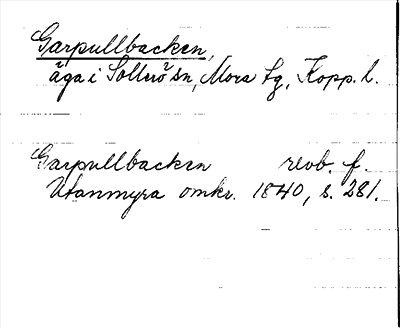 Garpullbacken,
äga i Sollerö sn, Mora tg, Kopp. l.
Garpullbacken revb. f.
Utanmyra omkr. 1840, s. 281.